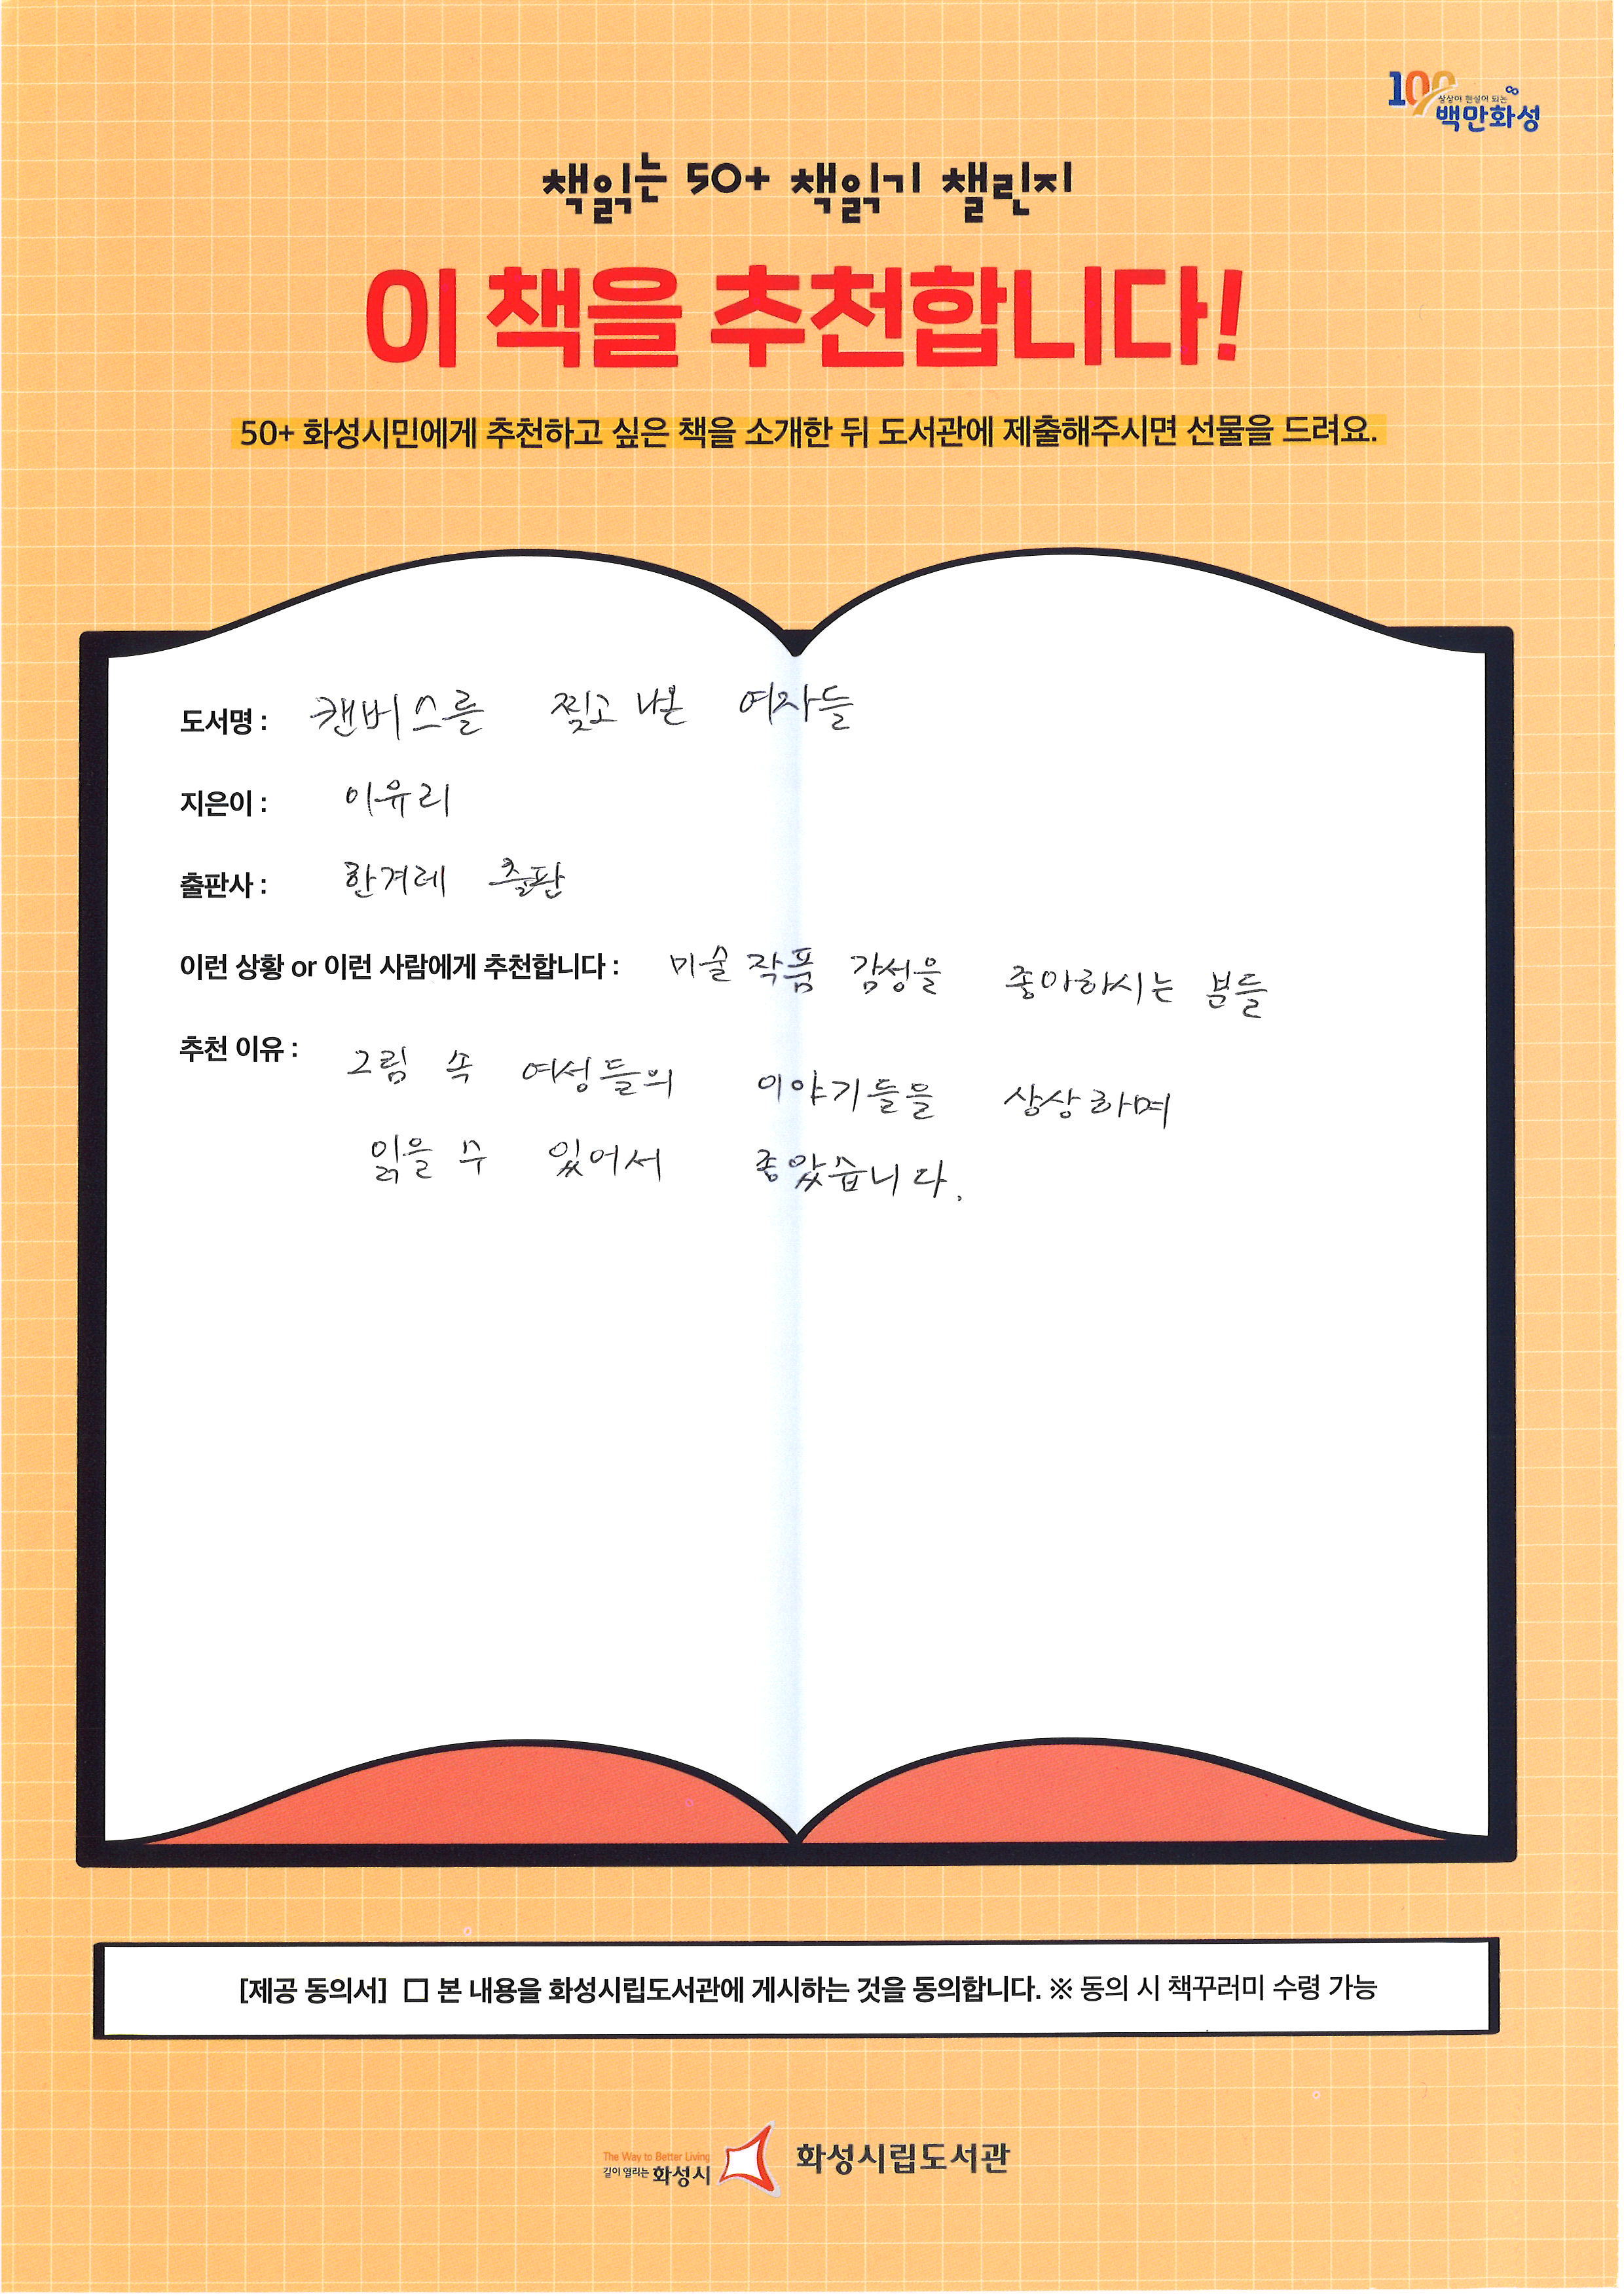 100
상상이 현실이 되는
백만화성
책읽는 50+ 책읽기 챌린지
이 책을 추천합니다!
50+ 화성시민에게 추천하고 싶은 책을 소개한 뒤 도서관에 제출해주시면 선물을 드려요.
도서명 : 캔버스를 찢고 나온 여자들
지은이 : 이유리
출판사 : 한겨레 출판
이런 상황 or 이런 사람에게 추천합니다 : 미술 작품 감성을 좋아하시는 분들
추천 이유 : 그림 속 여성들의 이야기들을 상상하며
읽을 수 있어서 좋았습니다.
[제공 동의서] □ 본 내용을 화성시립도서관에 게시하는 것을 동의합니다. ※ 동의 시 책꾸러미 수령 가능
The Way to Better Living
길이 열리는 화성시
화성시립도서관